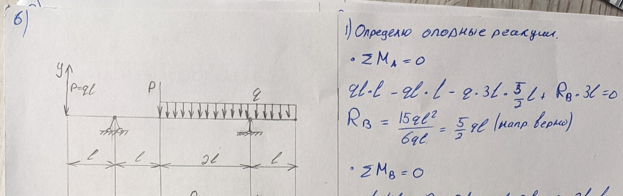 б)
y
P=ql
P
q
l
l
2l
l
1) Определю опорные реакции.
• ΣM_A = 0
ql·l - ql·l - q·3l·5/2 l + R_B·3l = 0
R_B = 15ql²/6ql = 5/2 ql (напр верно)
• ΣM_B = 0